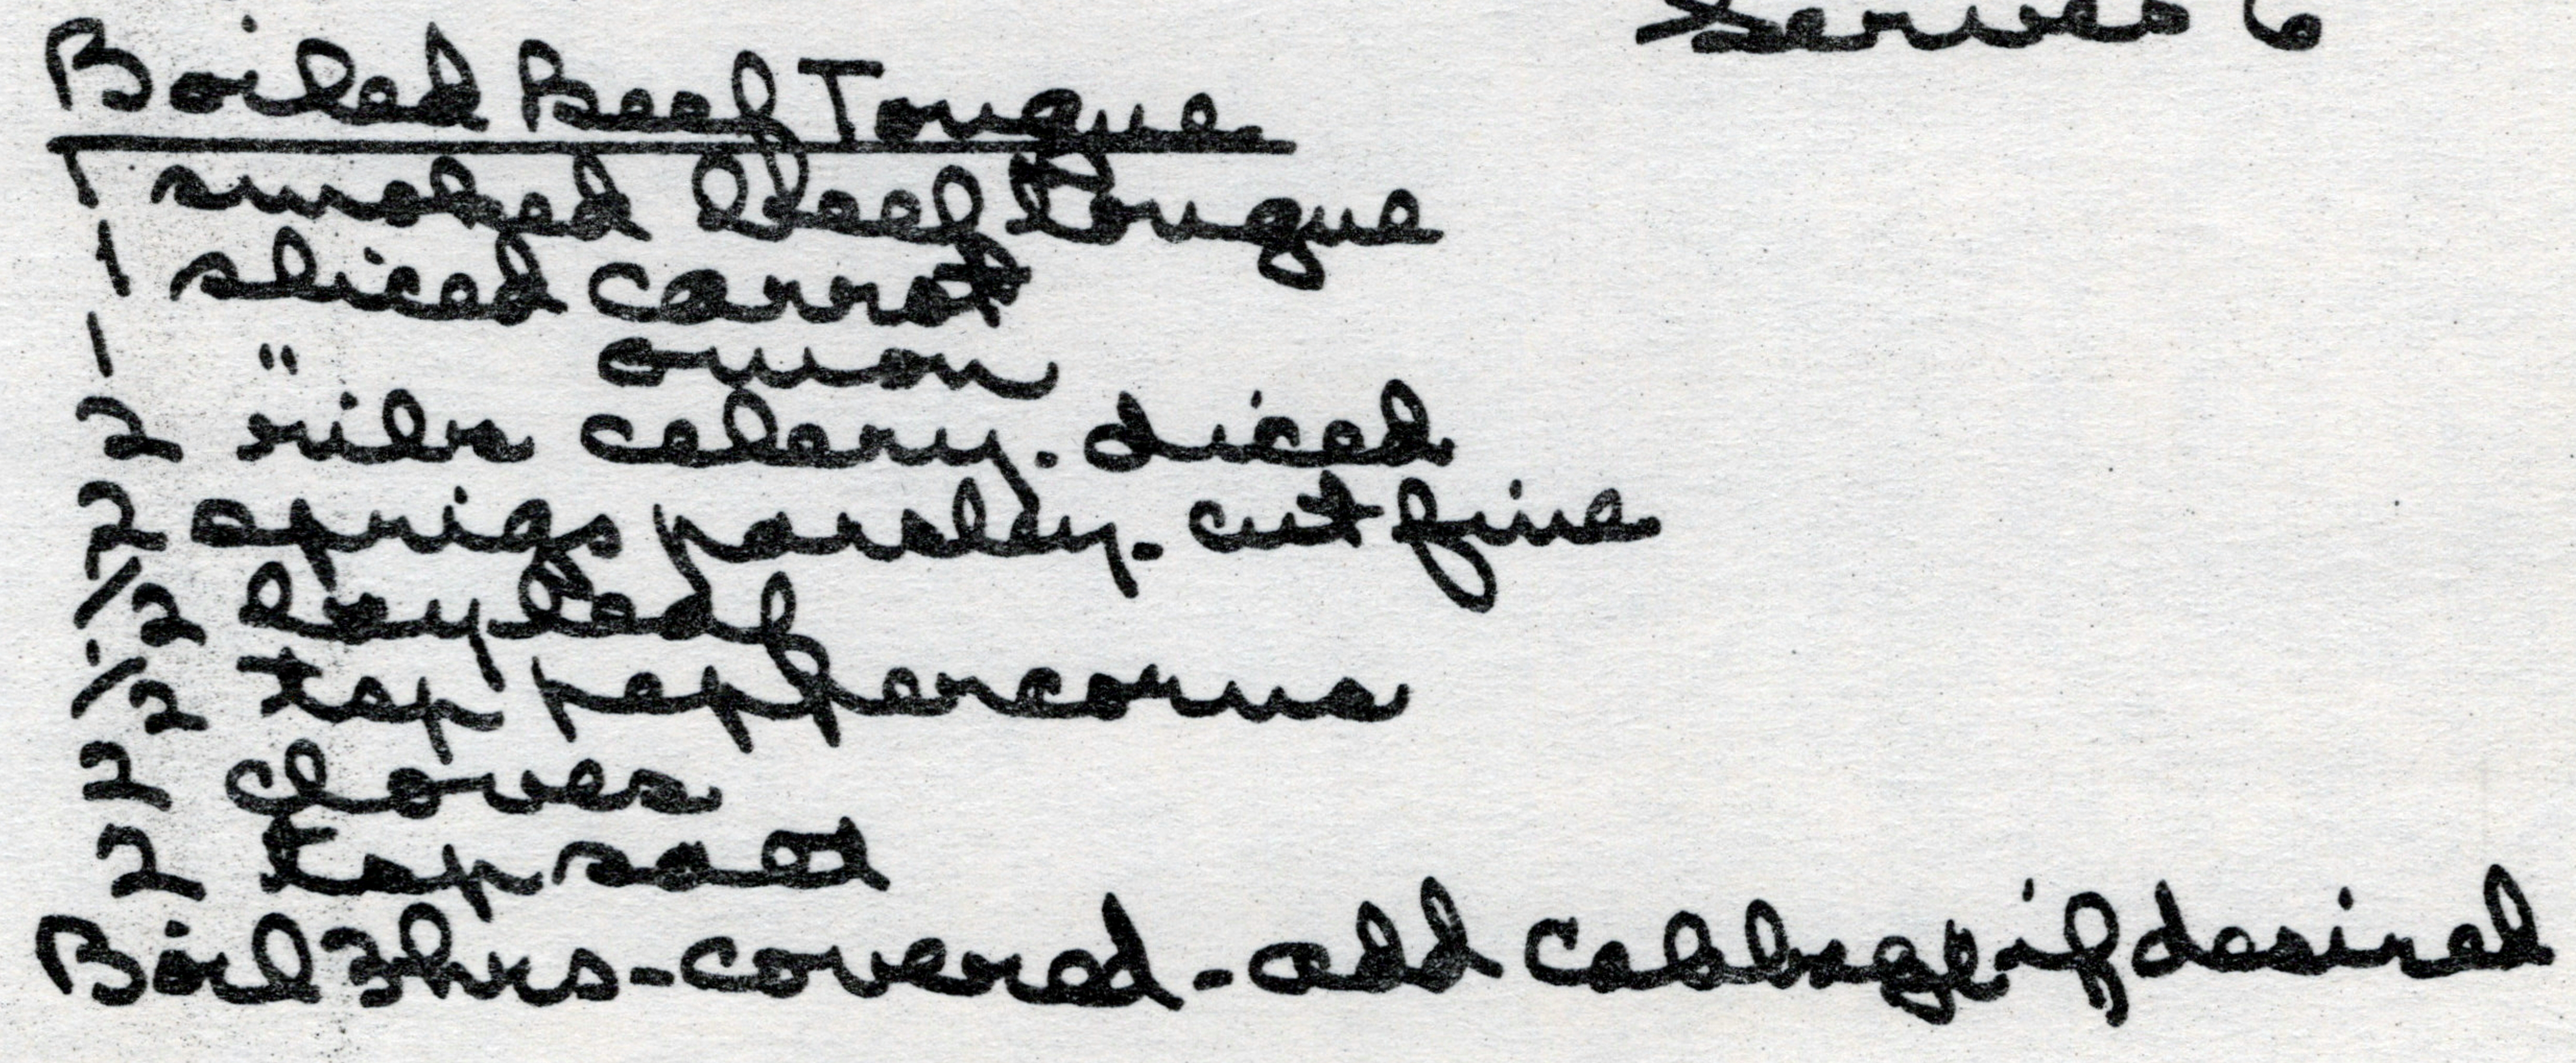 Serves 6
Boiled Beef Tongue
1 smoked beef tongue
1 sliced carrot
1 " onion
2 ribs celery. diced
2 sprigs parsley. cut fine
1/2 bay leaf
1/2 tsp peppercorns
2 cloves
2 tsp salt
Boil 3 hrs - covered - add cabbage if desired